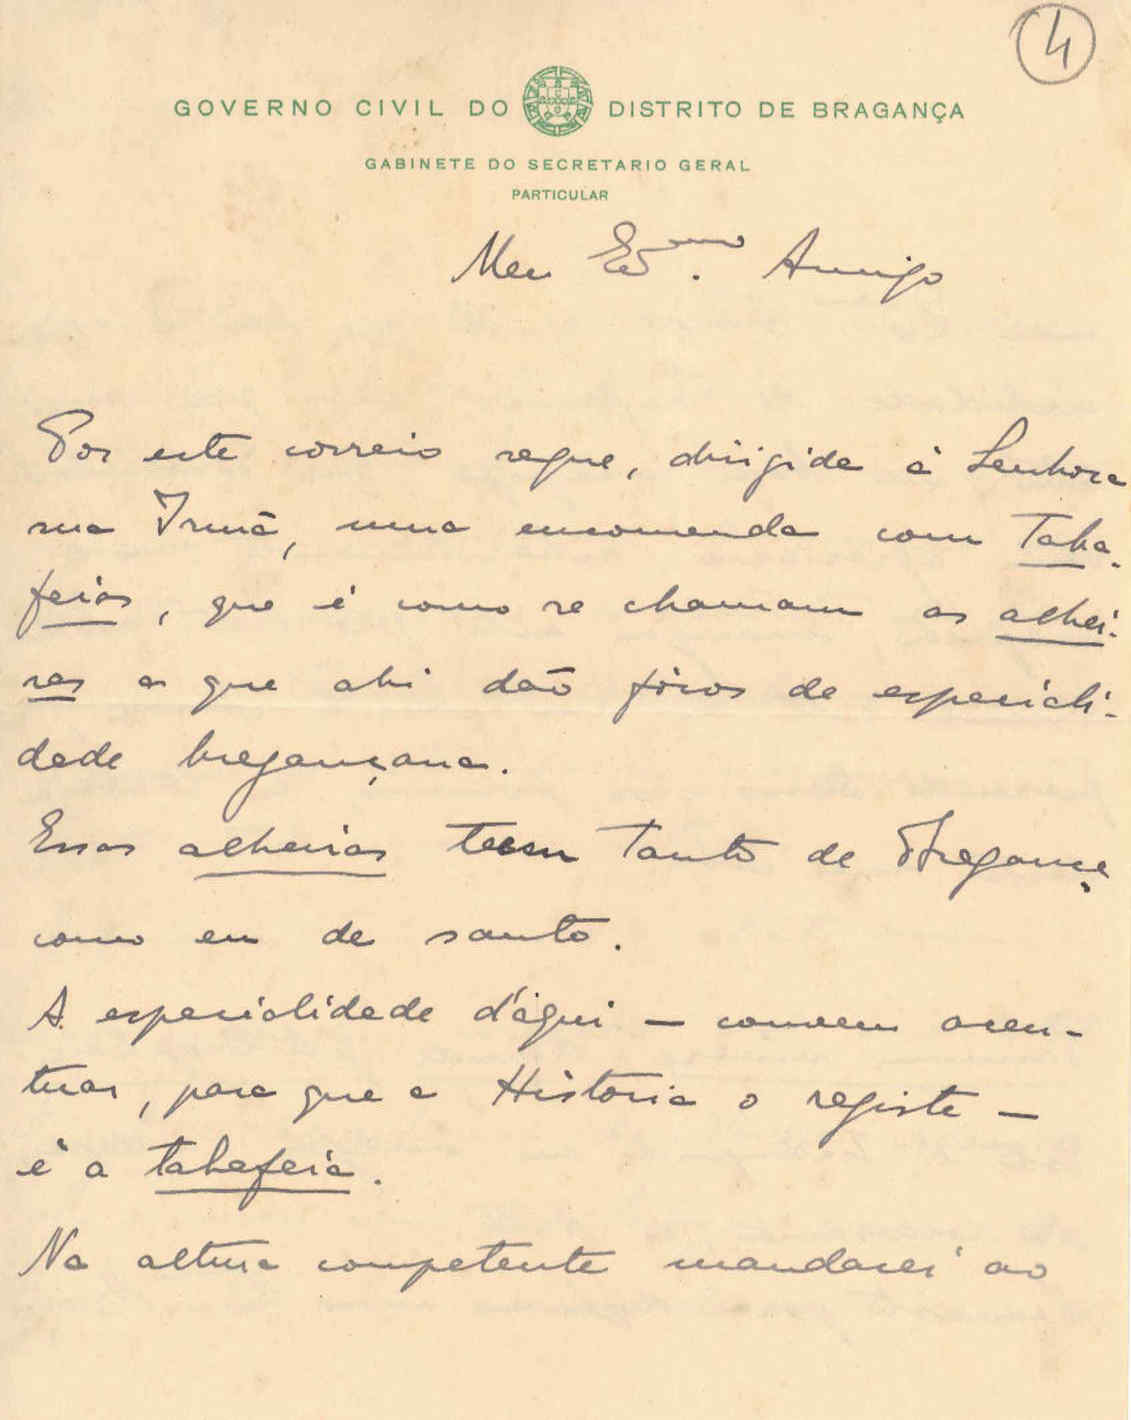 4
GOVERNO CIVIL DO DISTRITO DE BRAGANÇA
GABINETE DO SECRETARIO GERAL
PARTICULAR
Meu Exmo. Amigo
Por este correio segue, dirigida à Senhora
sua Irmã, uma encomenda com taba-
feias, que é como se chamam as alhei-
ras a que ahi dão fóros de especiali-
dade bragançana.
Essas alheiras teem tanto de Bragança
como eu de santo.
A especialidade d'aqui — convem acen-
tuar, para que a Historia o registe —
é a tabafeia.
Na altura competente mandarei ao